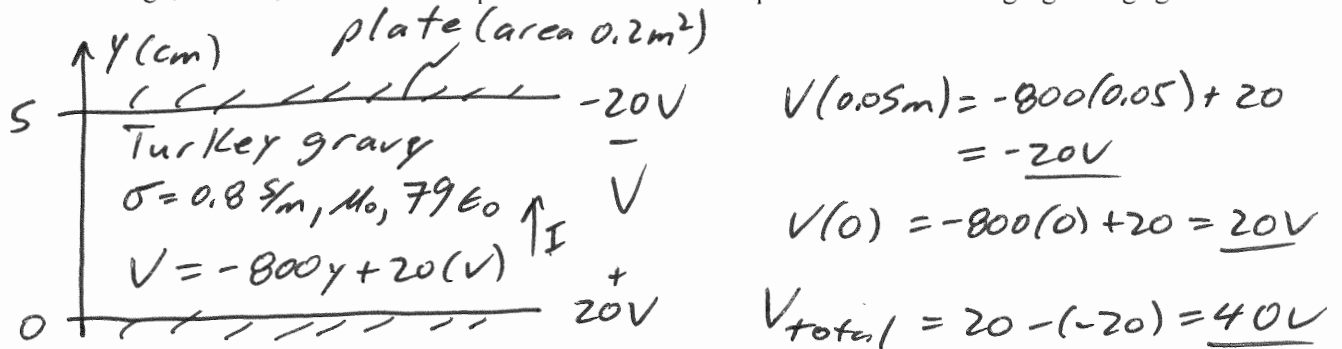 plate (area 0.2m²)
y (cm)
5
-20V
Turkey gravy
-
σ = 0.8 S/m, μ₀, 79 ε₀
V
I
V = -800y + 20 (V)
+
0
20V
V(0.05m) = -800(0.05) + 20
= -20V
V(0) = -800(0) + 20 = 20V
V total = 20 - (-20) = 40V